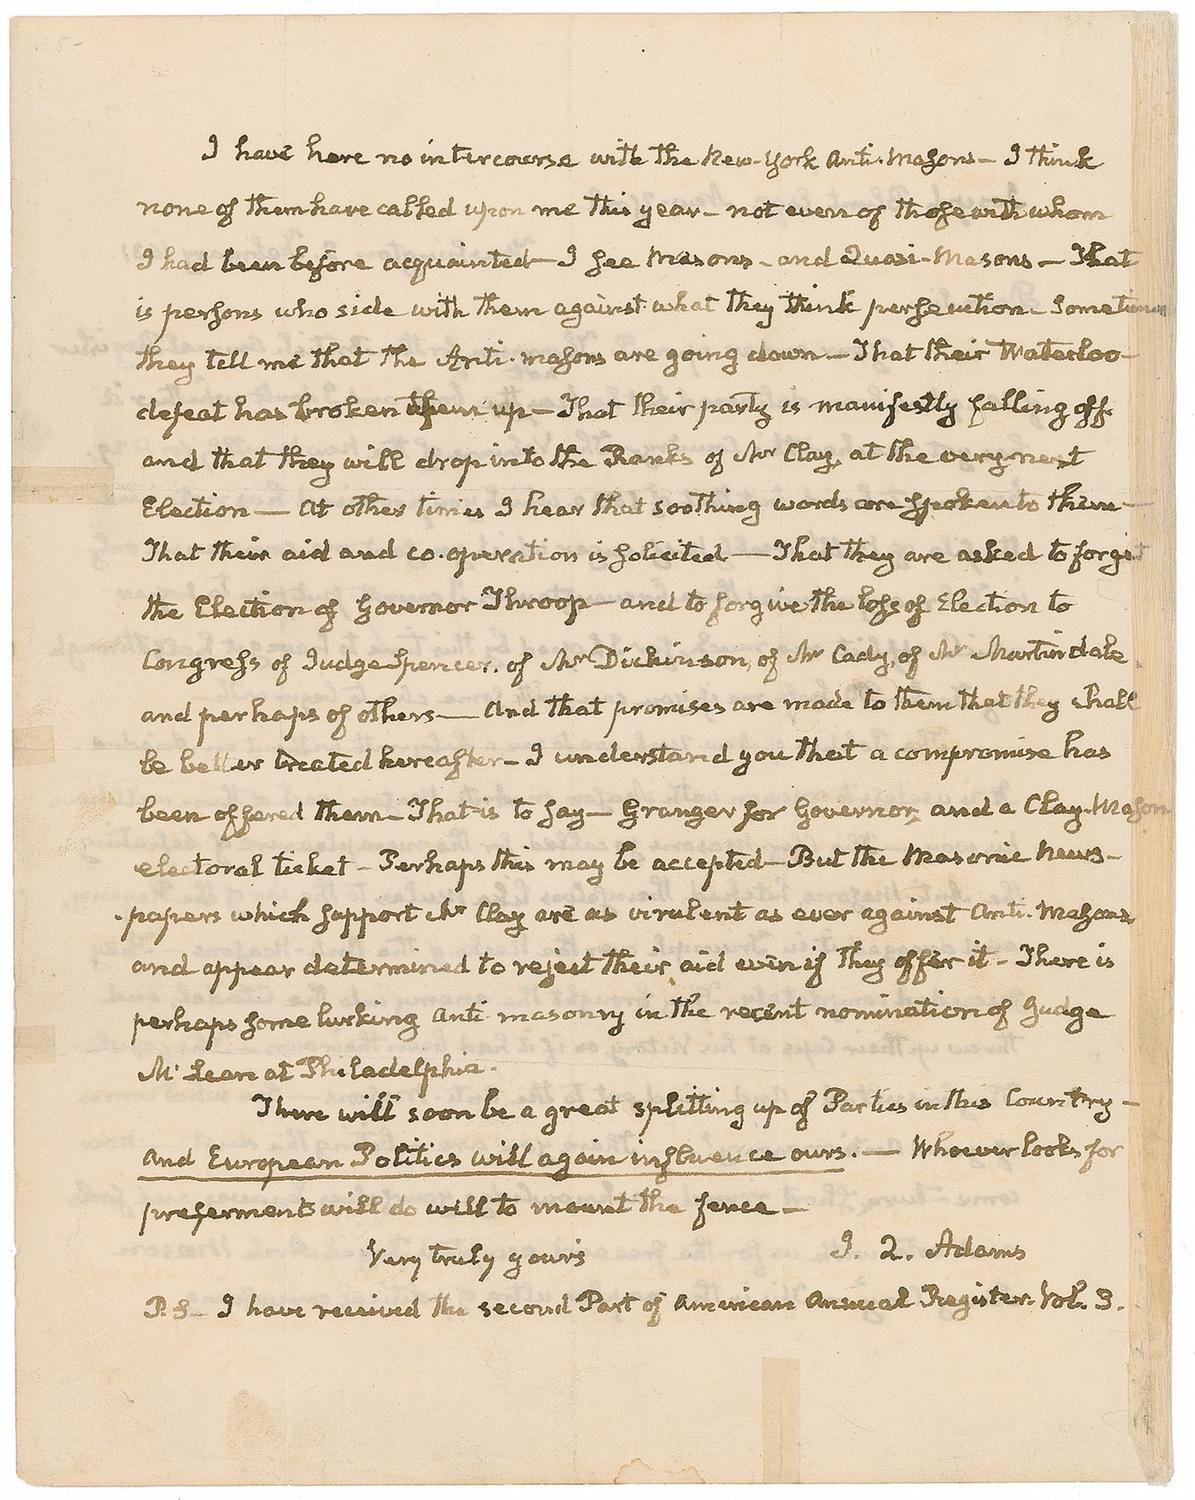 I have here no intercourse with the New-York Anti-Masons— I think
none of them have called upon me this year— not even of those with whom
I had been before acquainted— I see Masons— and Quasi-Masons— That
is persons who side with them against what they think persecution— Sometimes
they tell me that the Anti-masons are going down— That their Waterloo
defeat has broken them up— That their party is manifestly falling off
and that they will drop into the Ranks of Mr Clay, at the very next
Election— At other times I hear that soothing words are spoken to them—
That their aid and co-operation is solicited— That they are asked to forget
the Election of Governor Throop— and to forgive the loss of Election to
Congress of Judge Spencer, of Mr Dickinson, of Mr Cady, of Mr Martindale
and perhaps of others— And that promises are made to them that they shall
be better treated hereafter— I understand you that a compromise has
been offered them— That is to say— Granger for Governor, and a Clay-Mason
electoral ticket— Perhaps this may be accepted— But the Masonic News-
-papers which support Mr Clay are as virulent as ever against Anti-Masons
and appear determined to reject their aid even if they offer it— There is
perhaps some lurking Anti-masonry in the recent nomination of Judge
McLean at Philadelphia.
There will soon be a great splitting up of Parties in this Country—
and European Politics will again influence ours.— Whoever looks for
preferment will do well to mount the fence—
Very truly yours J. Q. Adams
P.S— I have received the second Part of American Annual Register. Vol. 3.